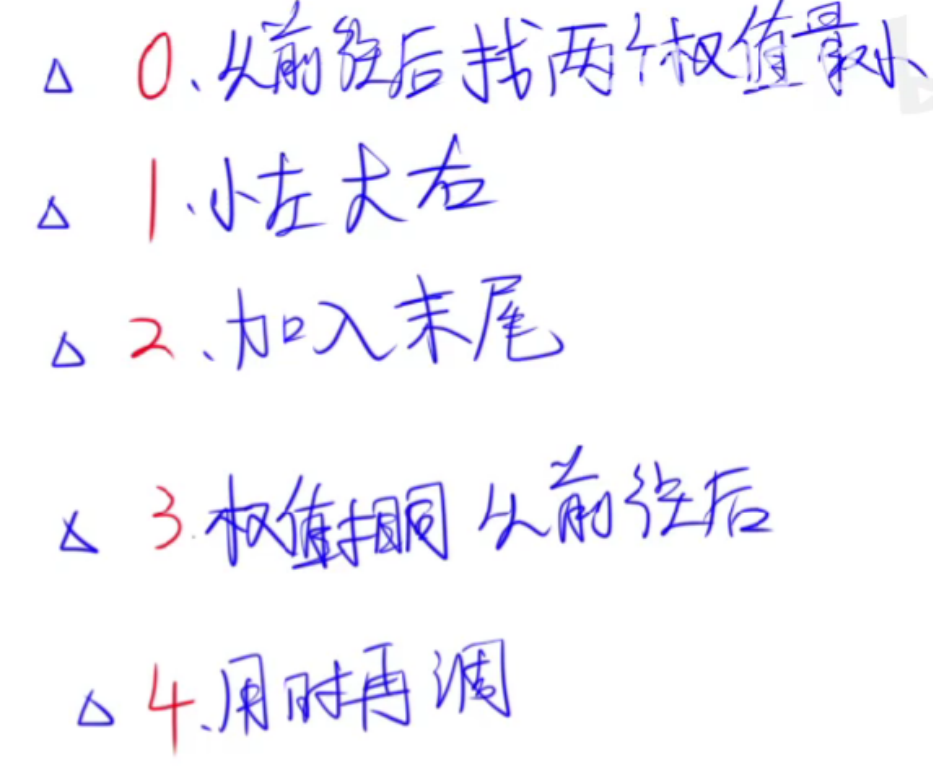 △ 0、从前往后找两个权值最小
△ 1、小左大右
△ 2、加入末尾
△ 3.权值相同从前往后
△ 4、用时再调